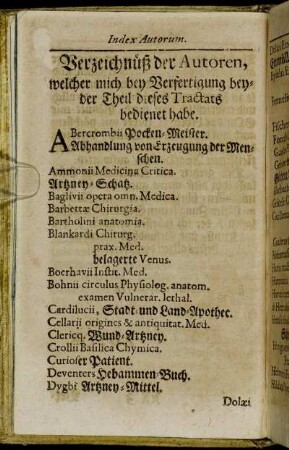 Index Autorum.
Verzeichnüß der Autoren,
welcher mich bey Verfertigung bey-
der Theil dieses Tractats
bedienet habe.
ABercrombii Pocken-Meister.
Abhandlung von Erzeugung der Men-
schen.
Ammonii Medicina Critica.
Artzney-Schatz.
Baglivii opera omn. Medica.
Barbettæ Chirurgia.
Bartholini anatomia.
Blankardi Chirurg.
prax. Med.
belagerte Venus.
Boerhavii Instit. Med.
Bohnii circulus Physiolog. anatom.
examen Vulnerar. lethal.
Cardilucii, Stadt- und Land-Apothec.
Cellarij origines & antiquitat. Med.
Clericq. Wund-Artzney.
Crollii Basilica Chymica.
Curioser Patient.
Deventers Hebammen-Buch.
Dygbi Artzney-Mittel.
Dolæi